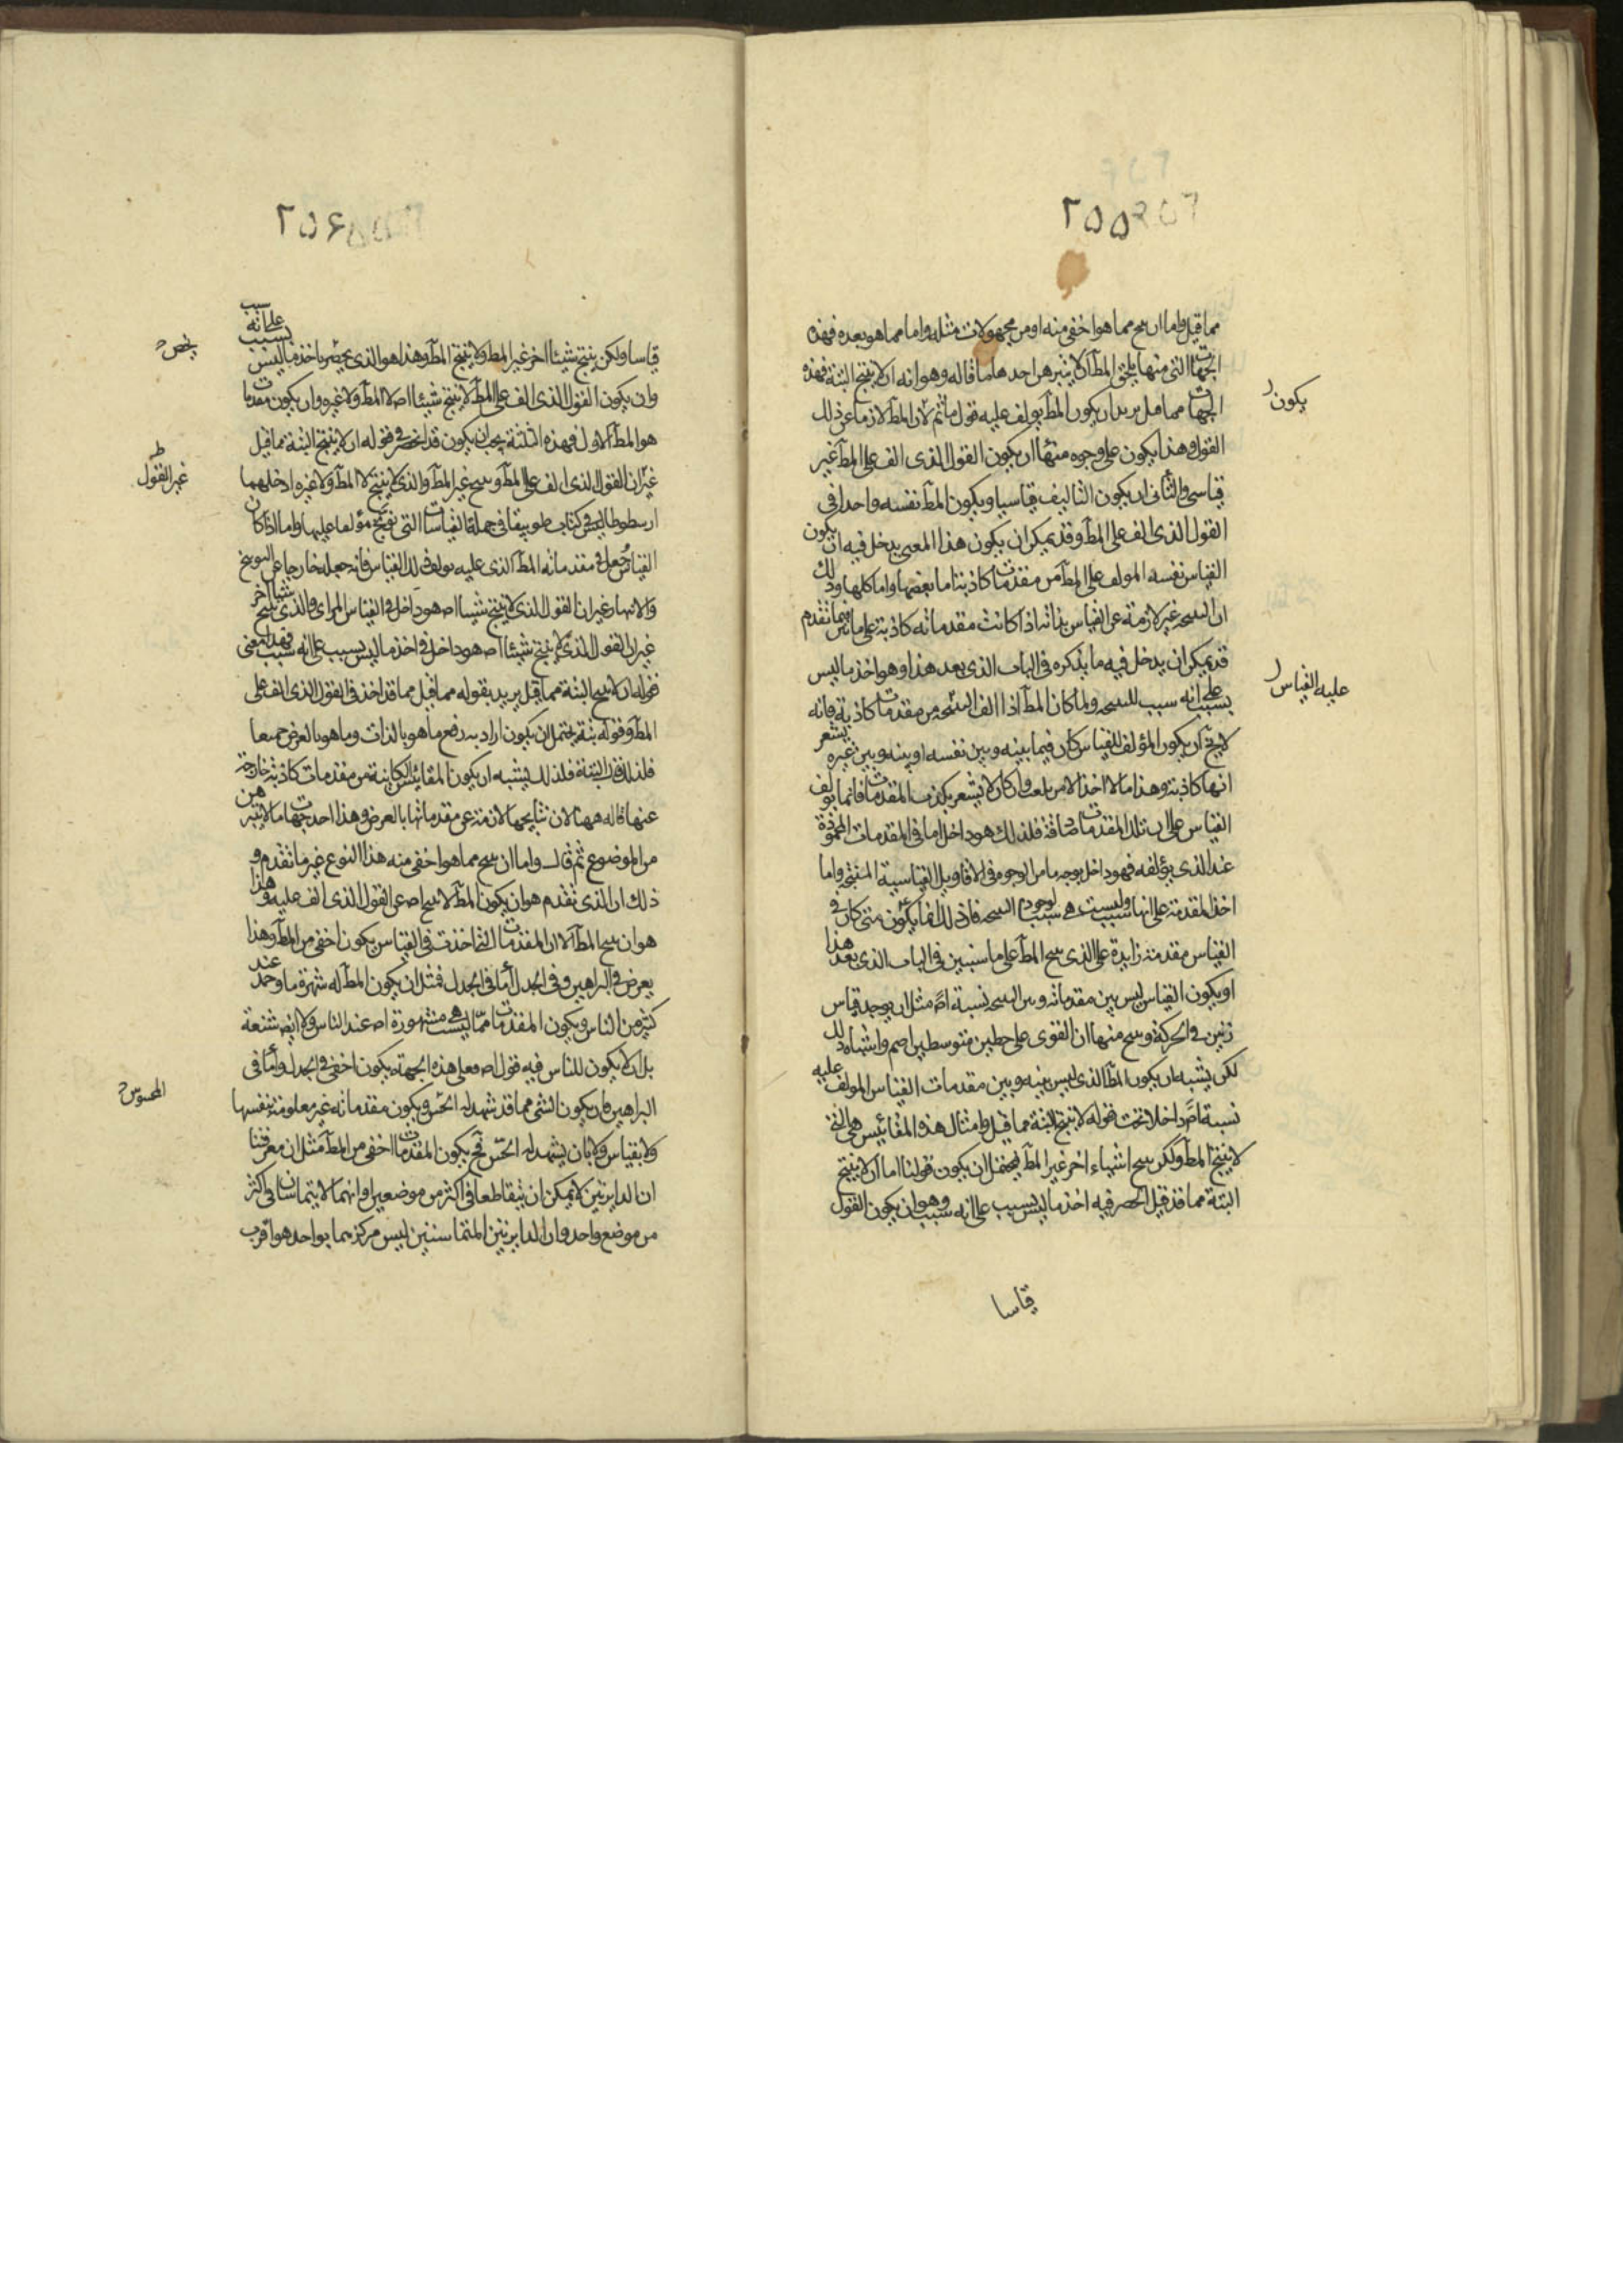 ٢٥٥
مما قيل واما ان ينتج مما هو اخفى منه او من مجهولات مثله واما مما هو بعده فهذه
الجهات التى منها يلحق المطـ الا يتبرهن احدها ما قاله وهو انه ان لا ينتج البتة فهذه
الجهات مما قيل يريد ان يكون المطـ يولف عليه قول ما ثم لا يكون المطـ لازما عن ذلك
القول وهذا يكون على وجوه منها ان يكون القول الذى الف على المطـ غير
قياسى والثانى ان يكون التاليف قياسيا ويكون المطـ نفسه واحدا فى
القول الذى الف على المطـ وقد يمكن ان يكون هذا المعنى يدخل فيه ان يكون
القياس نفسه المولف على المطـ من مقدمات كاذبة اما بعضها واما كلها وذلك
ان النتيجه غير لازمة عن القياس بذاته اذا كانت مقدماته كاذبة على ما تبين فيما تقدم
قد يمكن ان يدخل فيه ما يذكره فى الباب الذى بعد هذا وهو اخذ ما ليس
بسبب على انه سبب للنتيجه ولما كان المطـ اذا الف النتيجه من مقدمات كاذبة فانه
لا يخـ ان يكون المؤلف للقياس كان فيما بينه وبين نفسه او بينه وبين غيره يشعر
انها كاذبة وهذا ما لا اخذ الا من يلعب وان كان لا يشعر بكذب المقدمات فانما يولف
القياس على ان تلك المقدمات صادقة فلذلك هو داخل اما فى المقدمات المحمودة
عند الذى يؤلفه فهو داخل بوجه ما من الوجوه فى الاقاويل القياسية المنتجة واما
اخذ المقدمة على انها سبب وليست هى سبب لوجود النتيجه فان ذلك انما يكون متى كان فى
القياس مقدمة زايدة على الذى ينتج المطـ على ما سنبين فى الباب الذى بعد هذا
او يكون القياس ليس بين مقدماته وبين النتيجه نسبة اصـ مثل ان يوجد قياس
زينن فى الحركة وينتج منها ان القوى على خطين متوسطين اصم واشباه ذلك
لكن يشبه ان يكون المطـ الذى ليس بينه وبين مقدمات القياس المولف عليه
نسبة اصـ داخلا تحت قوله لا ينتج البتة مما قيل وامثال هذه المقائيس هى التى
لا ينتج المطـ ولكن ينتج اشياء اخر غير المطـ فيحتمل ان يكون قولنا اما ان لا ينتج
البتة مما قد قيل انحصر فيه اخذ ما ليس بسبب على انه سبب وهو ان يكون القول
قياسا
يكون
عليه القياس
٢٥۶
قياسا ولكن ينتج شيئا اخر غير المطـ ولا ينتج المطـ وهذا هو الذى يحضر باخذ ما ليس بسبب على انه سبب
وان يكون القول الذى الف على المطـ لا ينتج شيئا اصلا لا المطـ ولا غيره وان يكون مقدمات
هو المطـ الاول فهذه الثلثة يجب ان يكون قد انحصر فى قوله ان لا ينتج البتة مما قيل
غير ان القول الذى الف على المطـ وينتج غير المطـ والذى لا ينتج لا المطـ ولا غيره ادخلهما
ارسطوطاليس فى كتاب طوبيقا فى جملة القياسات التى تنتج مؤلفا عليها واما اذا كان
القياس جعل فى مقدماته المطـ الذى عليه يولف ذلك القياس فانه جعله خارجا عن التوبيخ
والانتهار غير ان القول الذى لا ينتج شيئا اصـ هو داخل فى القياس المرائى والذى ينتج شيئا اخر
غير ان القول الذى لم ينتج شيئا اصـ هو داخل فى اخذ ما ليس بسبب على انه سبب فهذا معنى
قوله ان لا ينتج البتة مما قيل يريد بقوله مما قيل مما قد اخذ فى القول الذى الف على
المطـ وقوله بتة يحتمل ان يكون اراد به رفع ما هو بالذات وما هو بالعرض جميعا
فلذلك قال البتة فلذلك يشبه ان يكون المقائيس الكاينة من مقدمات كاذبة خارجة
عنها قاله ههنا لان نتايجها لازمة عن مقدماتها بالعرض وهذا احد جهات ما لا يتبرهن
من الموضوع ثم قال واما ان ينتج مما هو اخفى منه هذا النوع غير ما تقدم و
ذلك ان الذى تقدم هو ان يكون المطـ لا ينتج اصـ عن القول الذى الف عليه وهذا
هو ان ينتج المطـ الا ان المقدمات التى اخذت فى القياس يكون اخفى من المطـ وهذا
يعرض فى البراهين وفى الجدل اما فى الجدل فمثل ان يكون المطـ له شهرة ما وحمد عند
كثير من الناس ويكون المقدمات مما ليست هى مشهورة اصـ عند الناس ولا ايضـ شنعة
بل ان لا يكون للناس فيه قول اصـ فعلى هذه الجهة يكون اخفى فى الجدل واما فى
البراهين فان يكون الشى مما قد شهد له الحس ويكون مقدماته غير معلومة بنفسها
ولا بقياس ولا بان يشهد له الحس فحـ يكون المقدمات اخفى من المطـ مثل ان معرفتنا
ان الدايرتين لا يمكن ان يتقاطعا فى اكثر من موضعين وانهما لا يتماسان فى اكثر
من موضع واحد وان الدايرتين المتماستين ليس مركزهما بواحد هو اقرب
غير القول
المحسوس